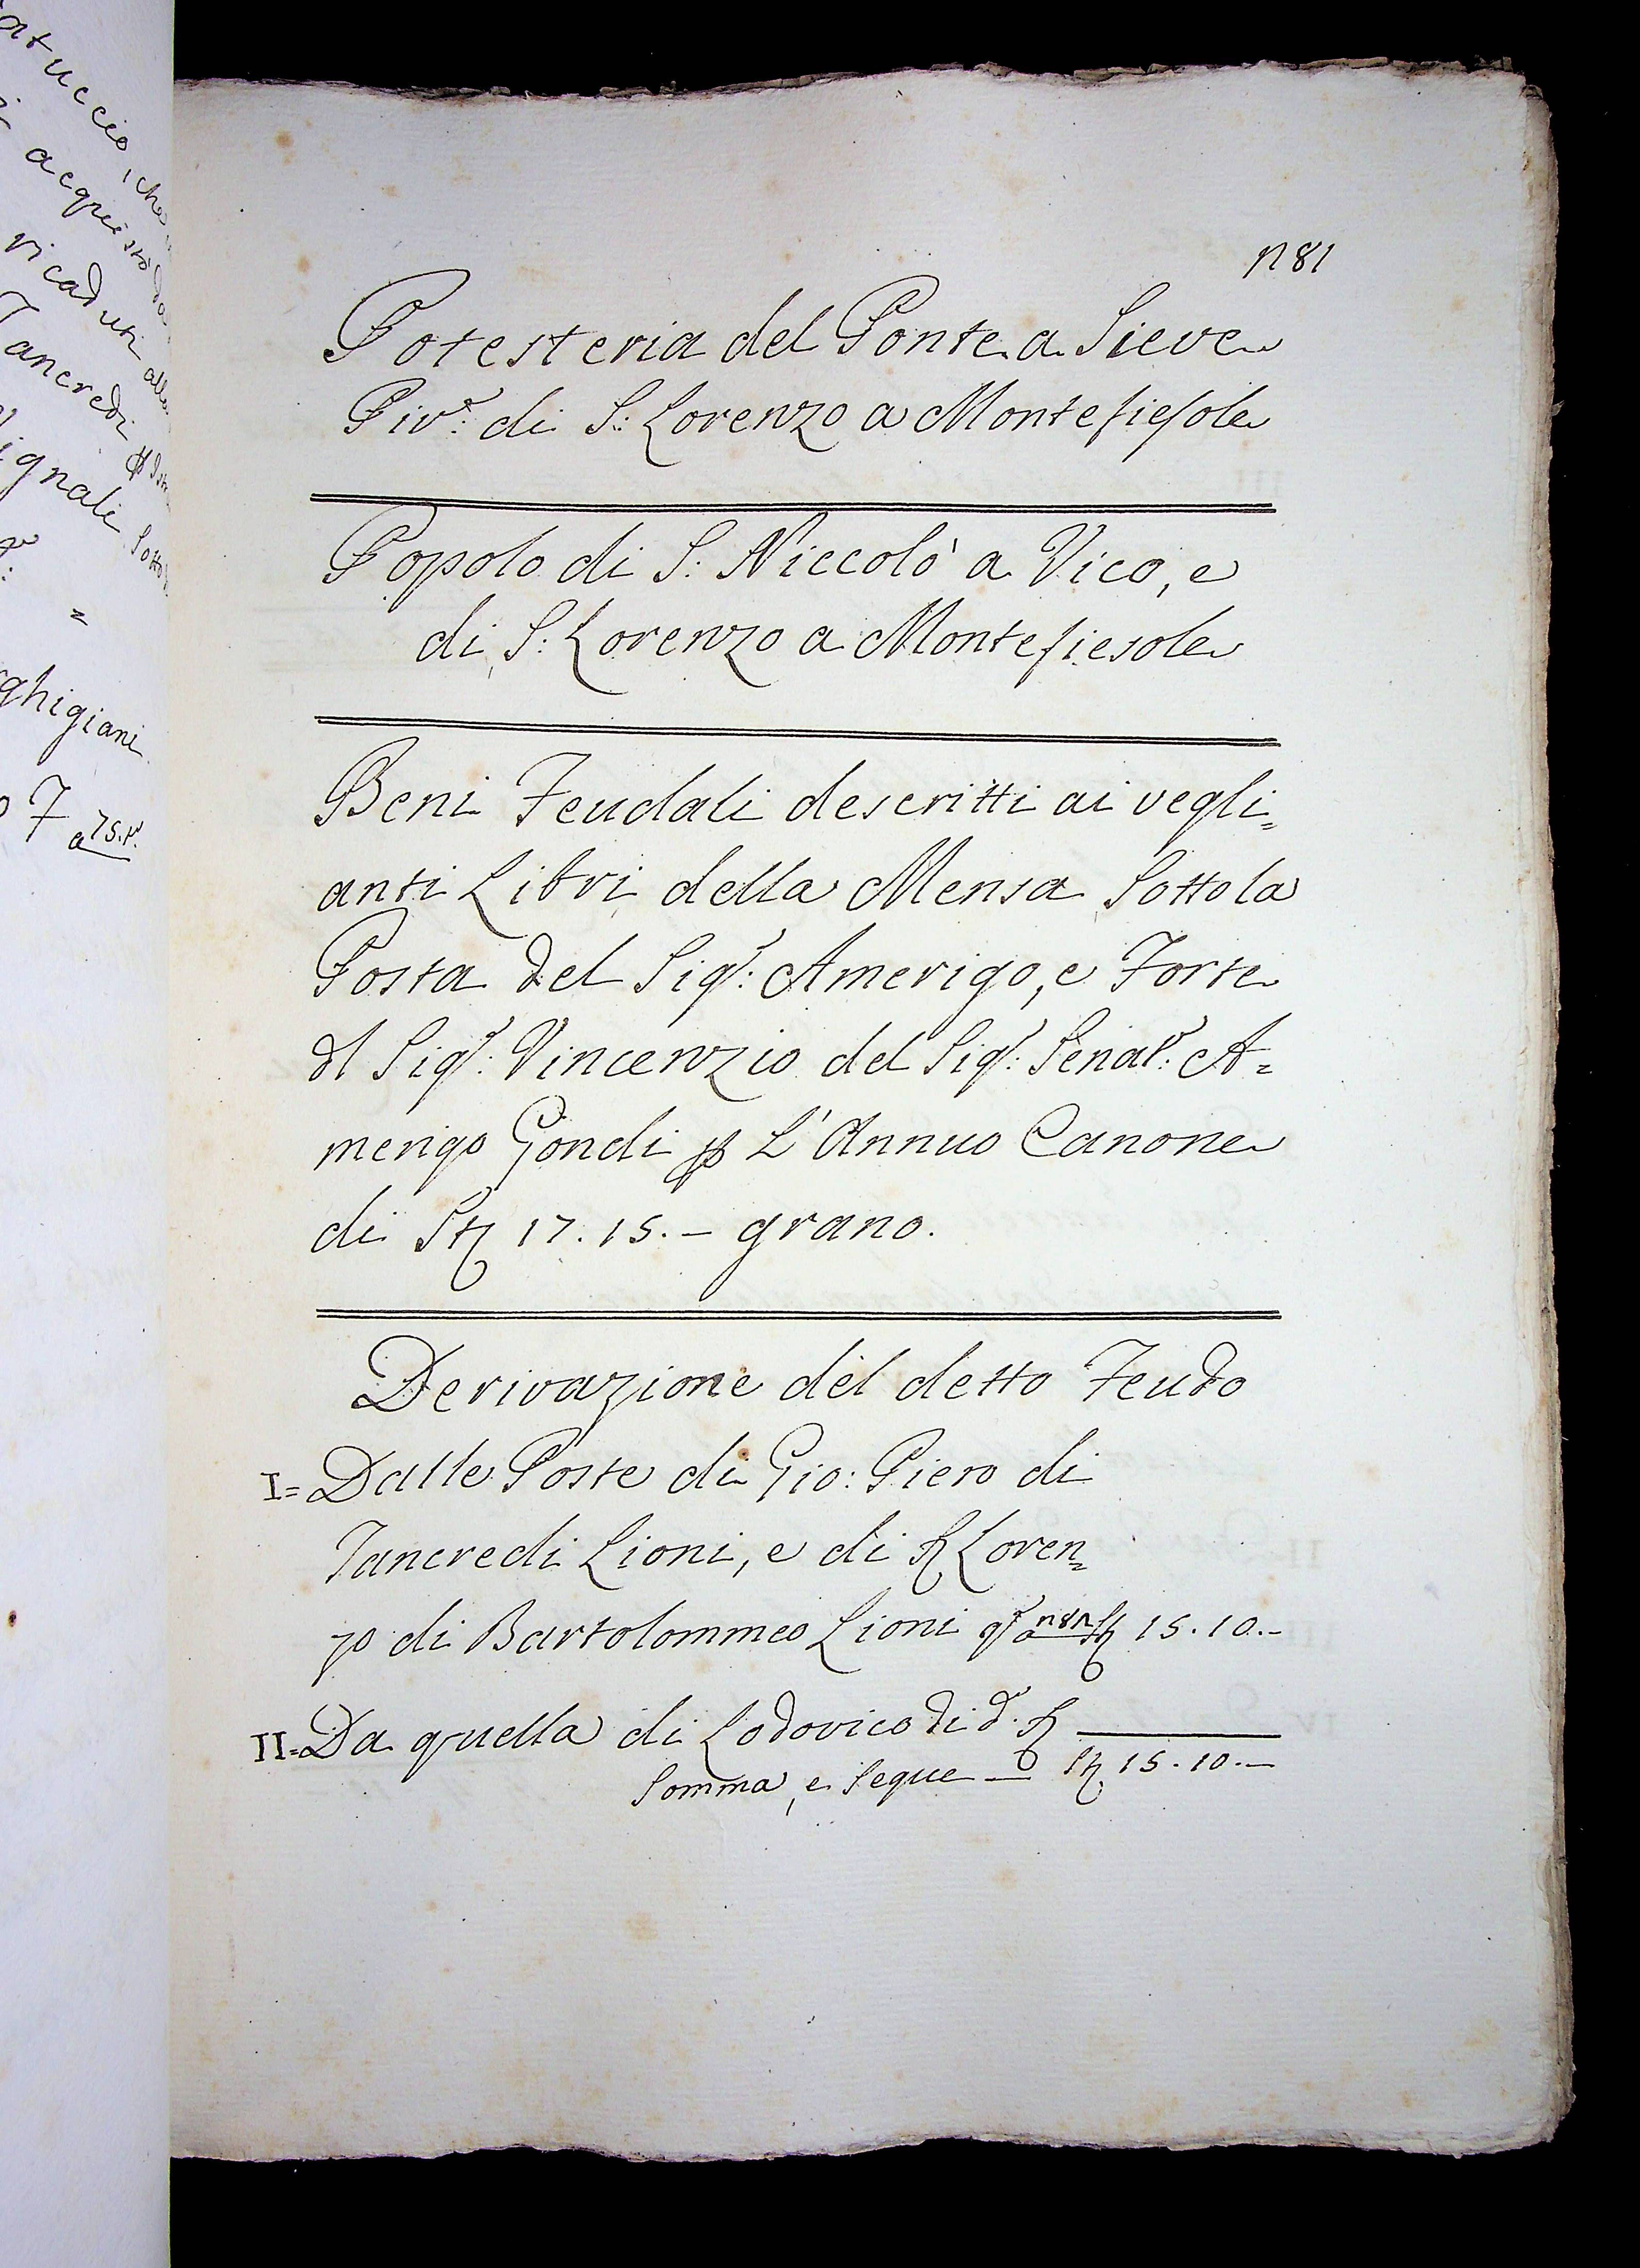 atuccio, che
acquistò da
ricaduti alla
Tancredi
ignali Sotto
=
ghigiani
7 a 75.t.
n81
Potesteria del Ponte a Sieve
Piv.e di S: Lorenzo a Montefiesole
Popolo di S: Niccolò a Vico, e
di S: Lorenzo a Montefiesole
Beni Feudali descritti ai vegli=
anti Libri della Mensa Sotto la
Posta del Sig.r: Amerigo, e Forte
dl Sig.r: Vincenzio del Sig.r: Senat.e: A=
merigo Gondi p L'Annuo Canone
di St 17.15.– grano.
Derivazione del detto Feudo
I= Dalle Poste di Gio: Piero di
Tancredi Lioni, e di Loren=
zo di Bartolommeo Lioni St 15.10.–
II= Da quella di Lodovico di d.o
Somma, e Segue — St 15.10.–